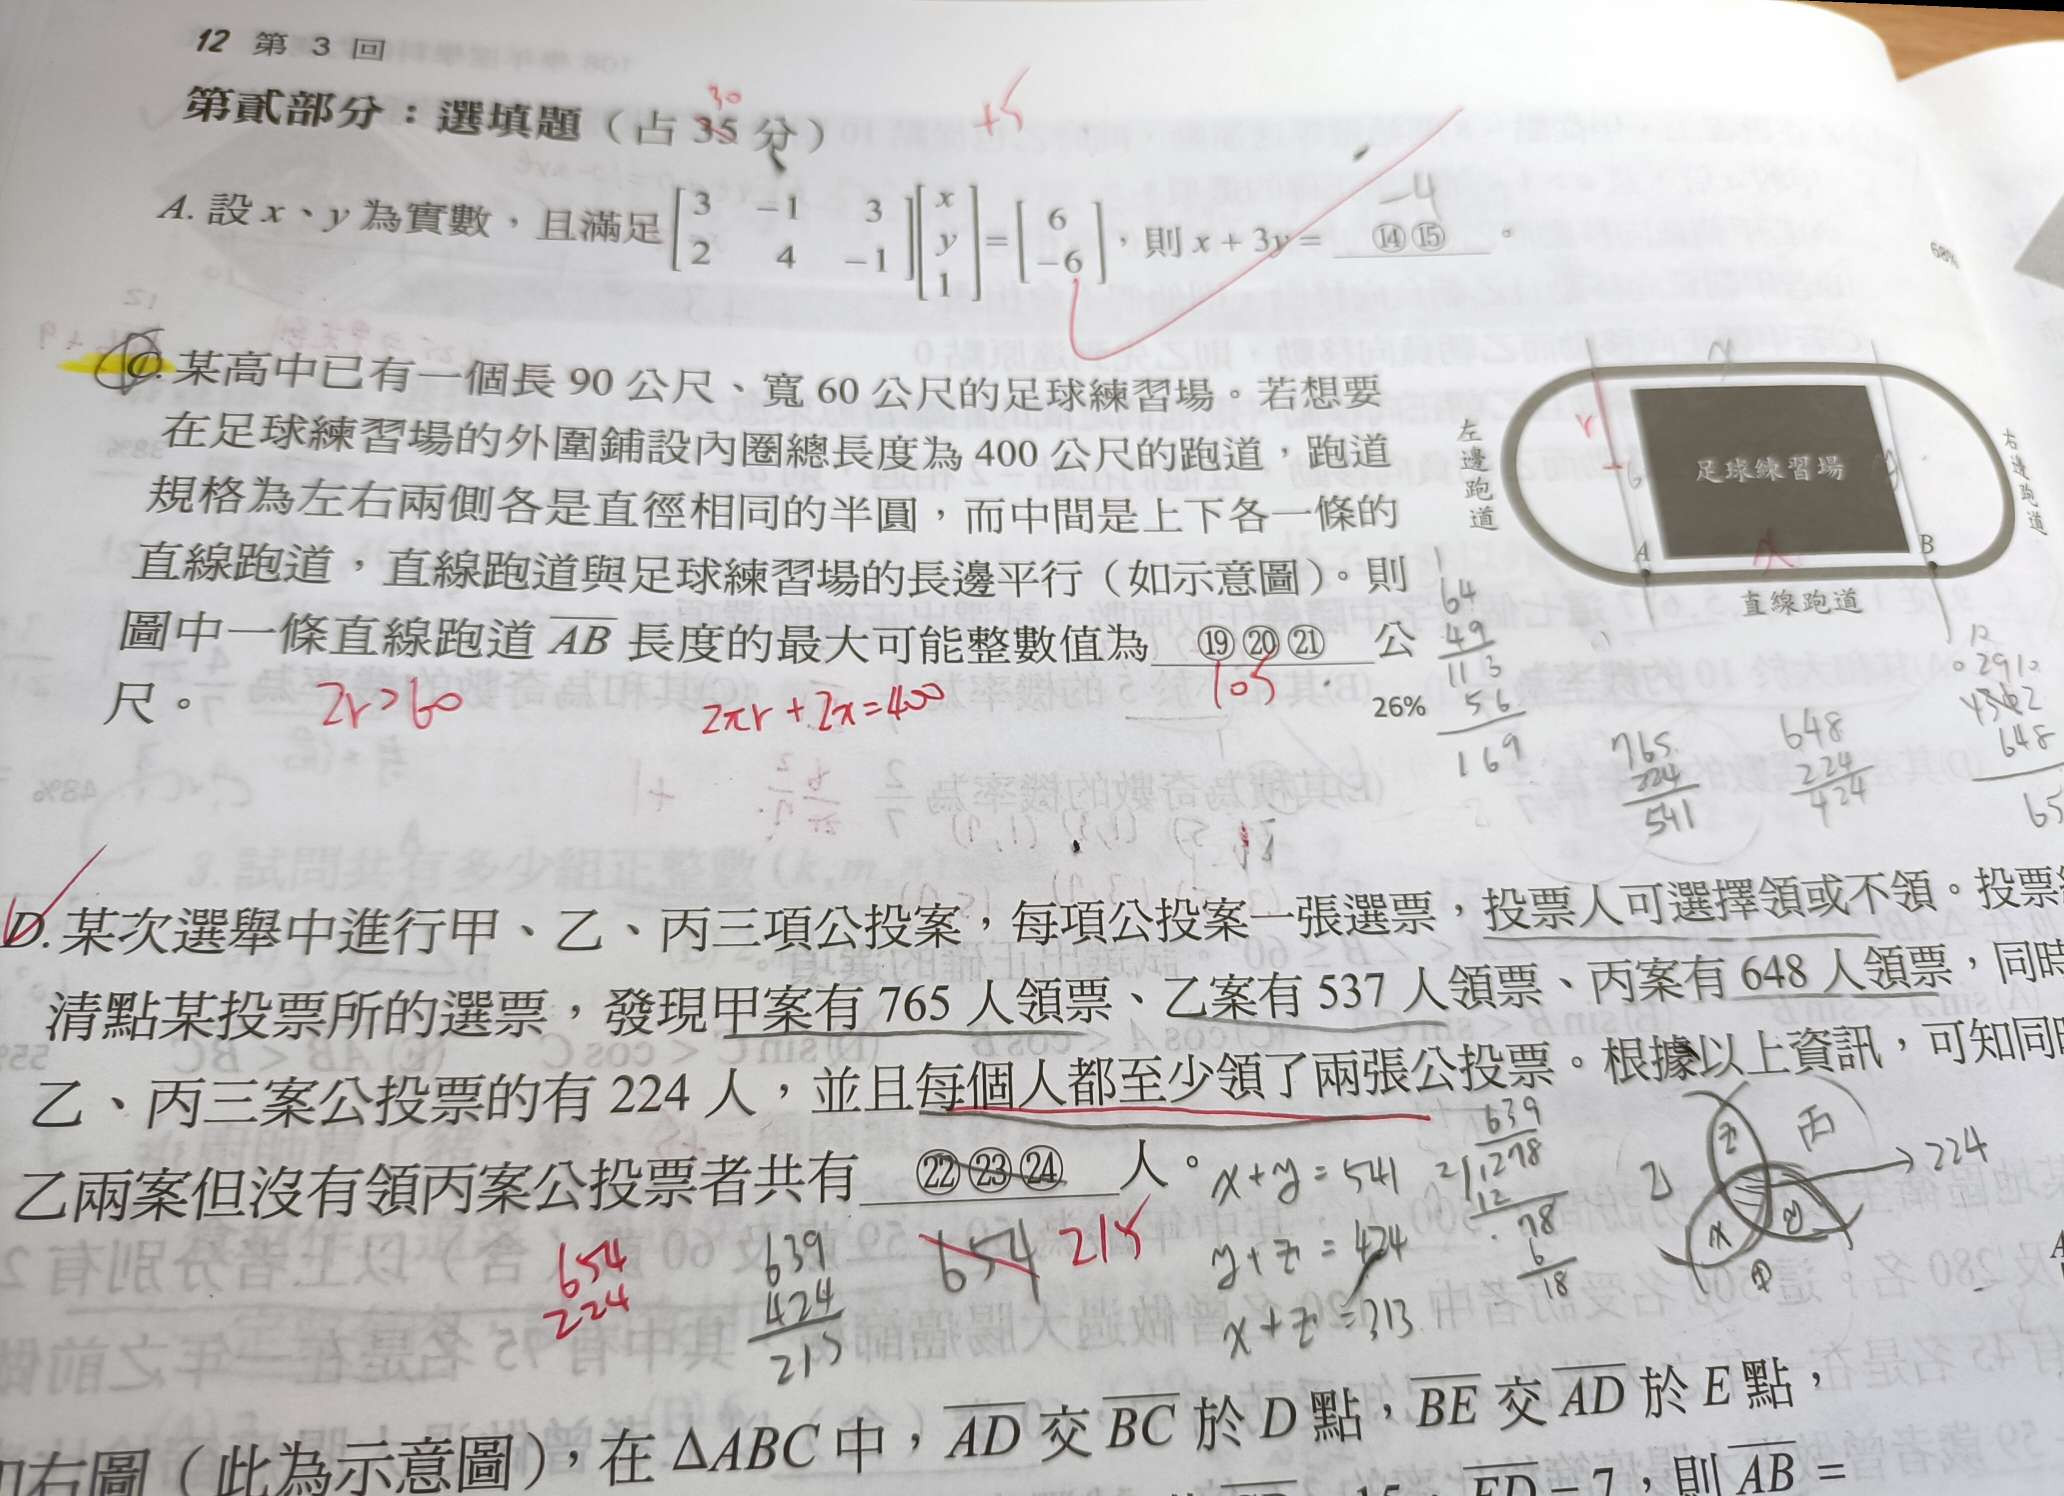 12 第 3 回
第貳部分：選填題（占 35 分）
30
+5
A. 設 x、y 為實數，且滿足 [3 -1 3 2 4 -1][x y 1] = [6 -6]，則 x + 3y = ⑭⑮。
-4
68%
C. 某高中已有一個長 90 公尺、寬 60 公尺的足球練習場。若想要
在足球練習場的外圍鋪設內圈總長度為 400 公尺的跑道，跑道
規格為左右兩側各是直徑相同的半圓，而中間是上下各一條的
直線跑道，直線跑道與足球練習場的長邊平行（如示意圖）。則
圖中一條直線跑道 AB 長度的最大可能整數值為 ⑲⑳㉑ 公
尺。
105
26%
2r>60
2πr+2x=400
左邊跑道
足球練習場
右邊跑道
A
B
直線跑道
r
x
64
49
113
56
169
765
224
541
648
224
424
648
65
D. 某次選舉中進行甲、乙、丙三項公投案，每項公投案一張選票，投票人可選擇領或不領。投票
清點某投票所的選票，發現甲案有 765 人領票、乙案有 537 人領票、丙案有 648 人領票，同時
乙、丙三案公投票的有 224 人，並且每個人都至少領了兩張公投票。根據以上資訊，可知同
乙兩案但沒有領丙案公投票者共有 ㉒㉓㉔ 人。
654
215
654
224
639
424
215
x+y=541
y+z=424
x+z=313
639
2)1278
12
78
6
18
乙
丙
甲
z
x
y
224
右圖（此為示意圖），在 ΔABC 中，AD 交 BC 於 D 點，BE 交 AD 於 E 點，
ED = 7，則 AB =